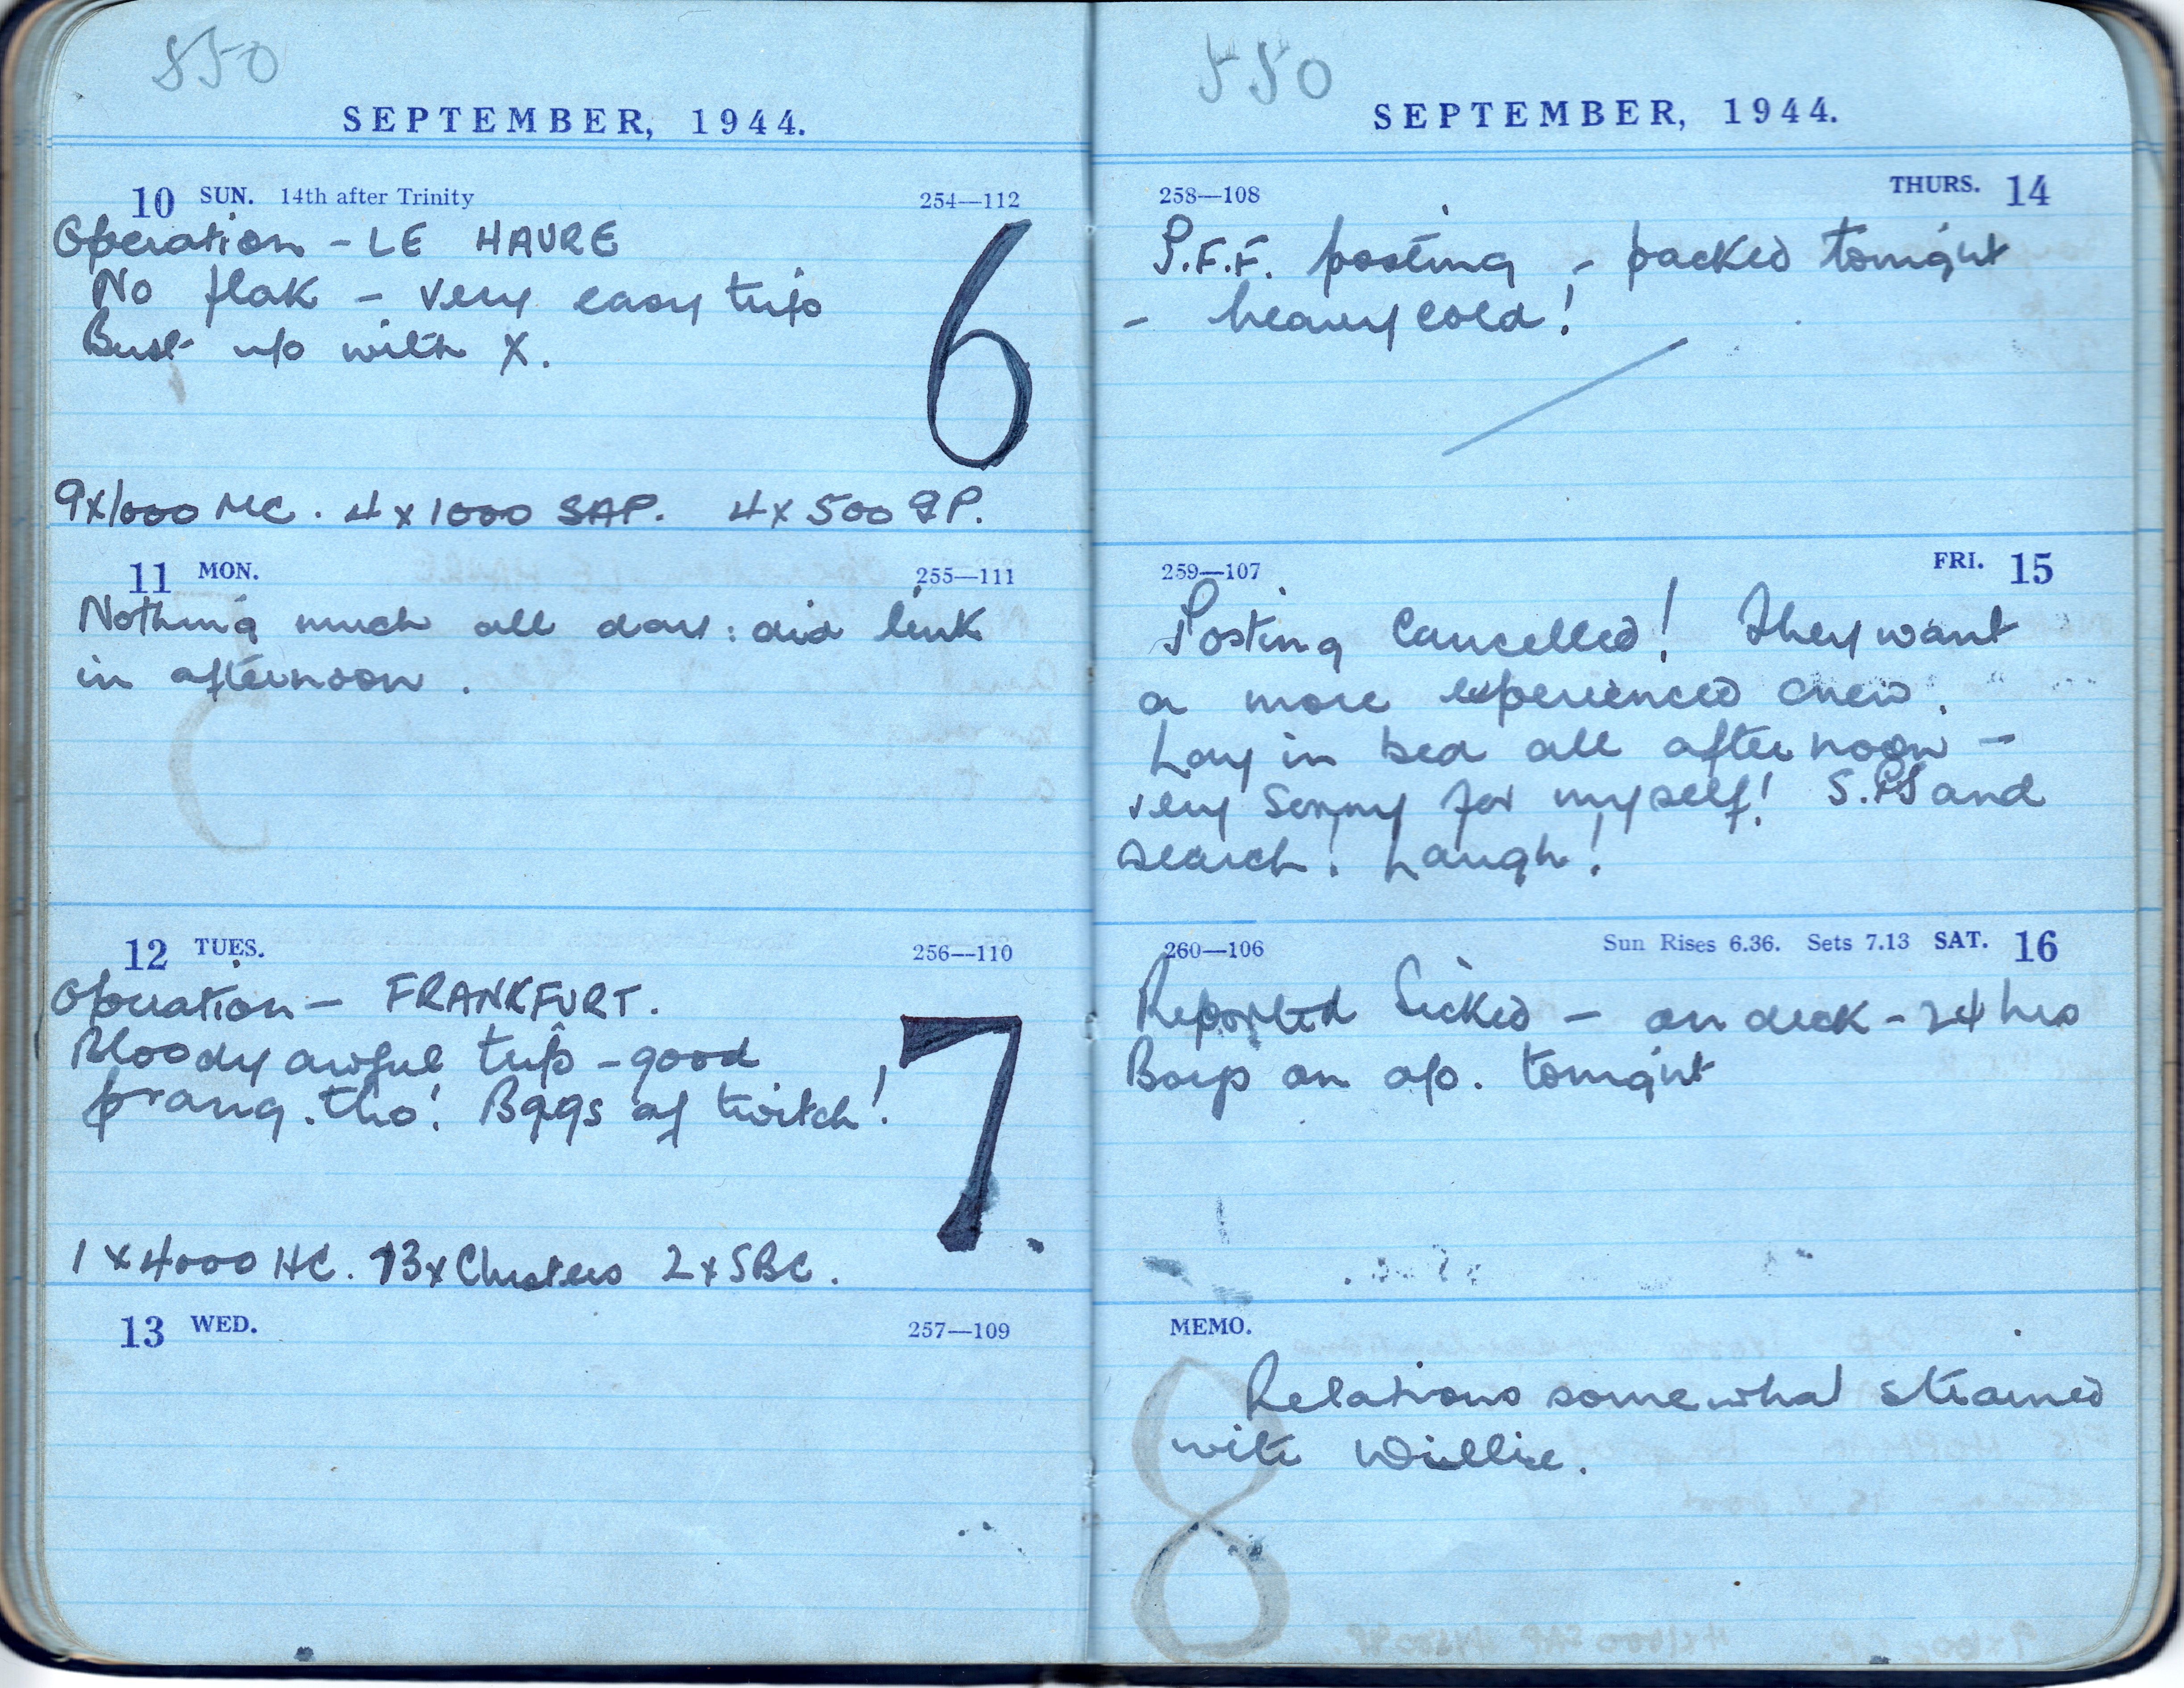 550
SEPTEMBER, 1944.
10 SUN. 14th after Trinity 254—112
Operation - LE HAVRE
No flak - very easy trip
Bust up with X.
6
9x1000 MC. 4 x 1000 SAP. 4 x 500 GP.
11 MON. 255—111
Nothing much all day: did link
in afternoon.
12 TUES. 256—110
Operation - FRANKFURT.
Bloody awful trip - good
prang. tho'. Bags of twitch!
7.
1 x 4000 HC. 13 x Clusters 2 x SBC.
13 WED. 257—109
550
SEPTEMBER, 1944.
258—108 THURS. 14
P.F.F. posting - packed tonight
- heavy cold!
259—107 FRI. 15
Posting Cancelled! They want
a more experienced crew.
Lay in bed all afternoon -
very sorry for myself! S.P.S and
search! Laugh!
260—106 Sun Rises 6.36. Sets 7.13 SAT. 16
Reported Sicked - on deck - 24 hrs
Boys on op. tonight
MEMO.
Relations somewhat strained
with Willie.